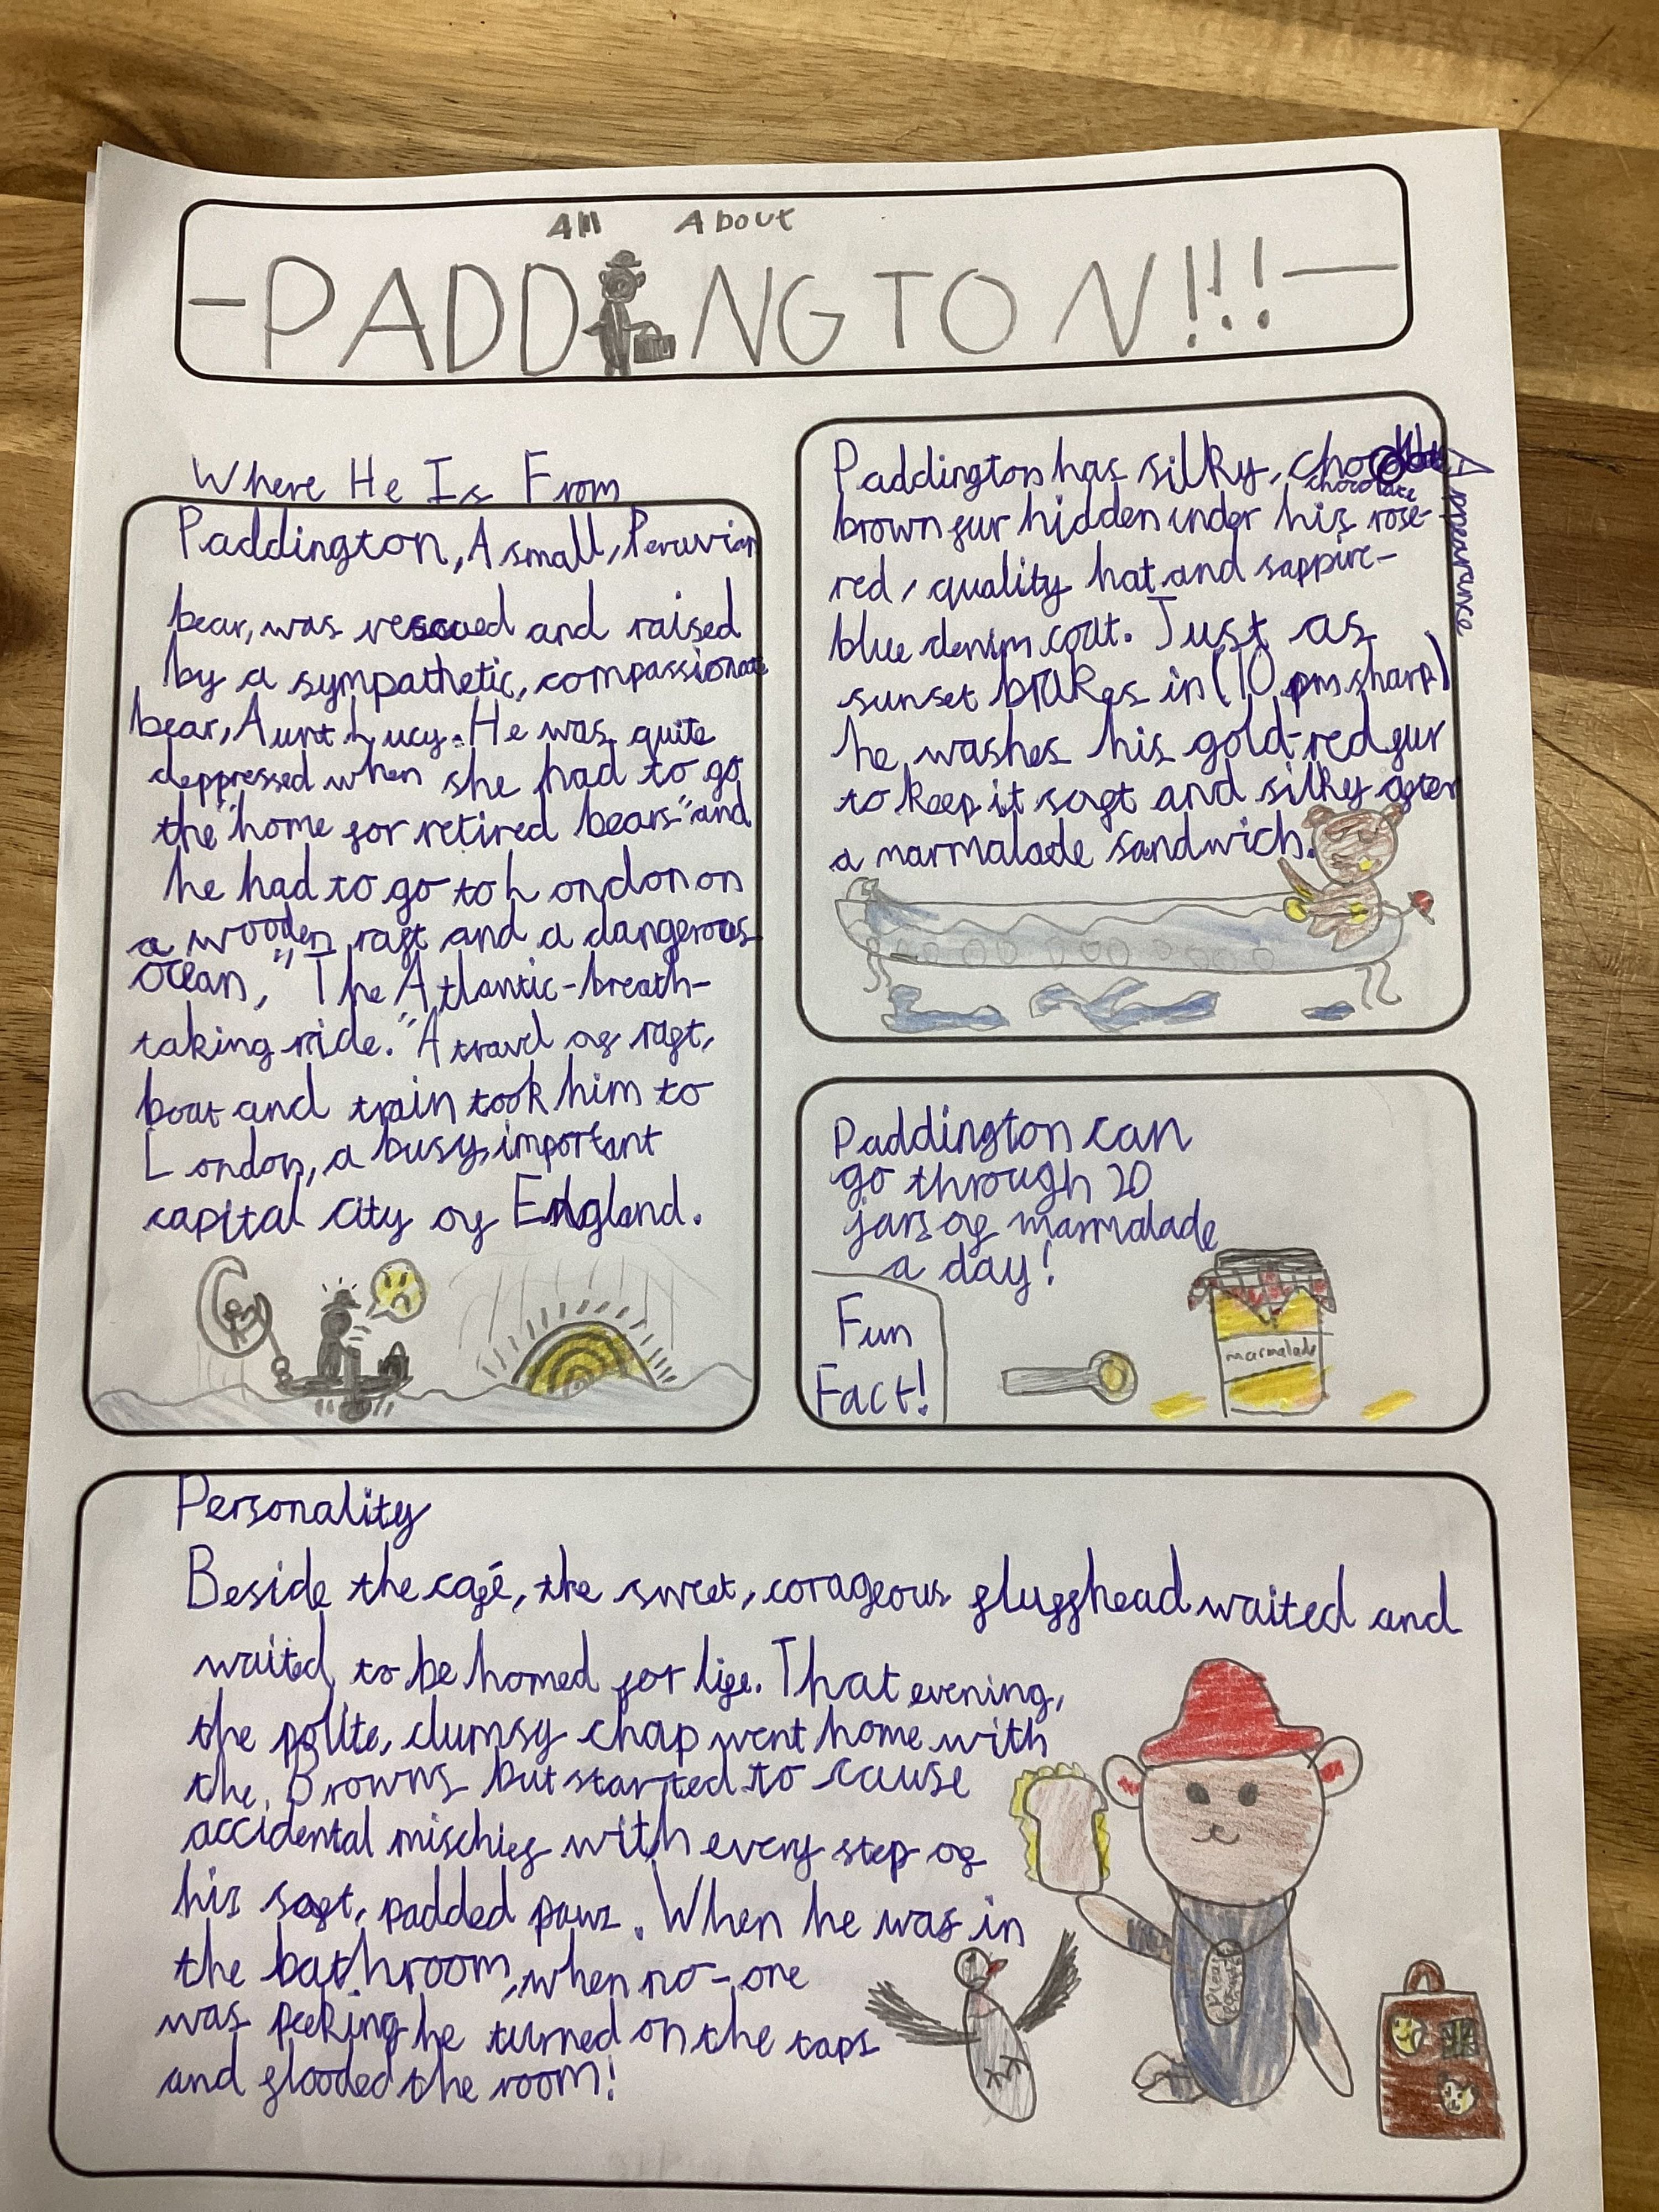 All About
-PADDINGTON!!!-
Where He Is From
Paddington, A small, Peruvian
bear, was rescued and raised
by a sympathetic, compassionate
bear, Aunt Lucy. He was quite
deppressed when she had to go
the "home for retired bears" and
he had to go to London on
a wooden raft and a dangerous
ocean, "The Atlantic-breath-
taking ride." A travel of raft,
boat and train took him to
London, a busy, important
capital city of England.
Appearance
Paddington has silky, choc
chocolate
brown fur hidden under his rose-
red, quality hat and sappire-
blue denim coat. Just as
sunset brakes in (10 pm sharp)
he washes his gold-red fur
to keep it soft and silky after
a marmalade sandwich.
Paddington can
go through 20
jars of marmalade
a day!
Fun
Fact!
marmalade
Personality
Beside the café, the sweet, corageous fluffhead waited and
waited to be homed for life. That evening,
the polite, clumsy chap went home with
the Browns but started to cause
accidental mischief with every step of
his soft, padded paws. When he was in
the bathroom, when no-one
was peeking he turned on the taps
and flooded the room!